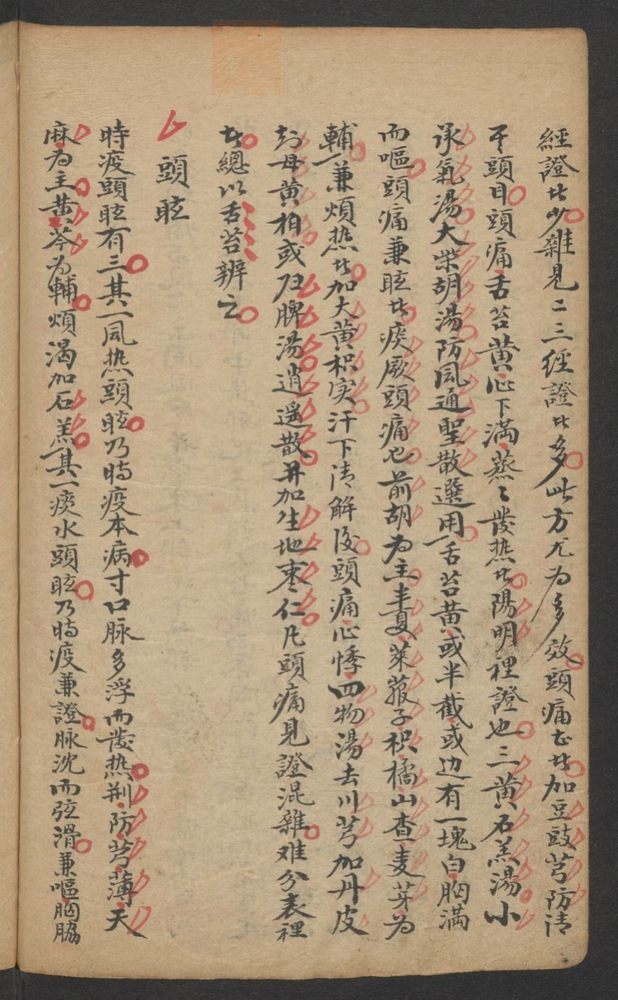 經證者少雜見二三經證者多此方尤為多效頭痛甚者加豆豉芎防清
于頭目頭痛舌苔黃心下滿蒸々發热者陽明裡證也三黃石羔湯小
承氣湯大柴胡湯防風通聖散選用舌苔黃或半截或边有一塊白胸滿
而嘔頭痛兼眩者痰厥頭痛也前胡為主半夏萊菔子枳橘山查麦芽為
輔兼煩热者加大黃枳实汗下清解後頭痛心悸四物湯去川芎加丹皮
知母黃柏或归脾湯逍遥散并加生地枣仁凡頭痛見證混雜难分表裡
者總以舌苔辨之
頭眩
時疫頭眩有三其一風热頭眩乃時疫本病寸口脉多浮而發热荆防芎薄天
麻為主黄芩為輔煩渴加石羔其一痰水頭眩乃時疫兼證脉沈而弦滑兼嘔胸脇